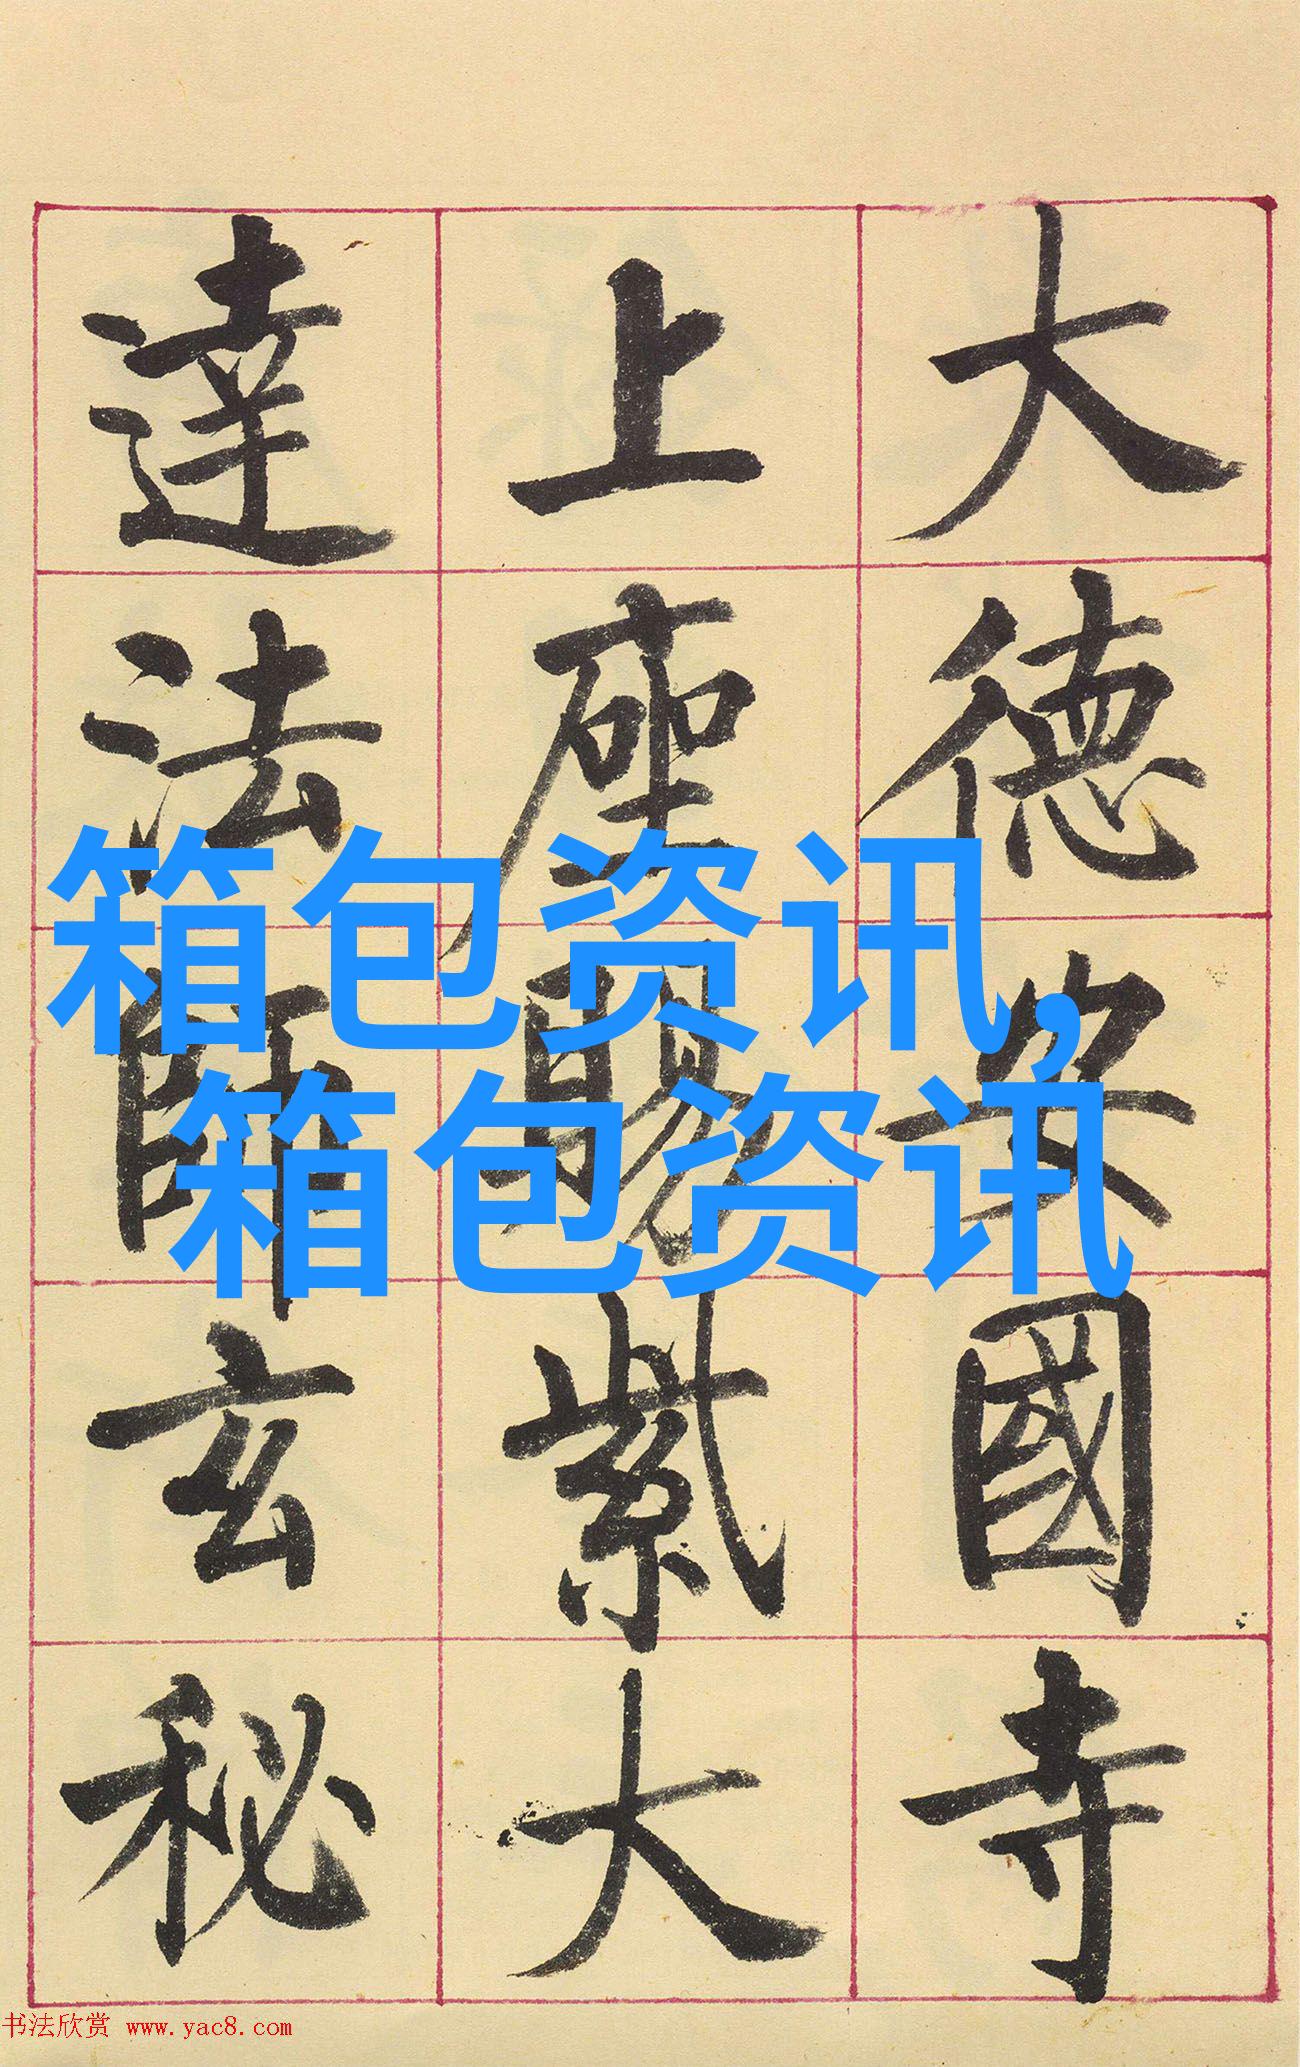 大德安國寺
上座賜紫大
達法師玄秘
箱包资讯,
箱包资讯
书法欣赏 www.yac8.com